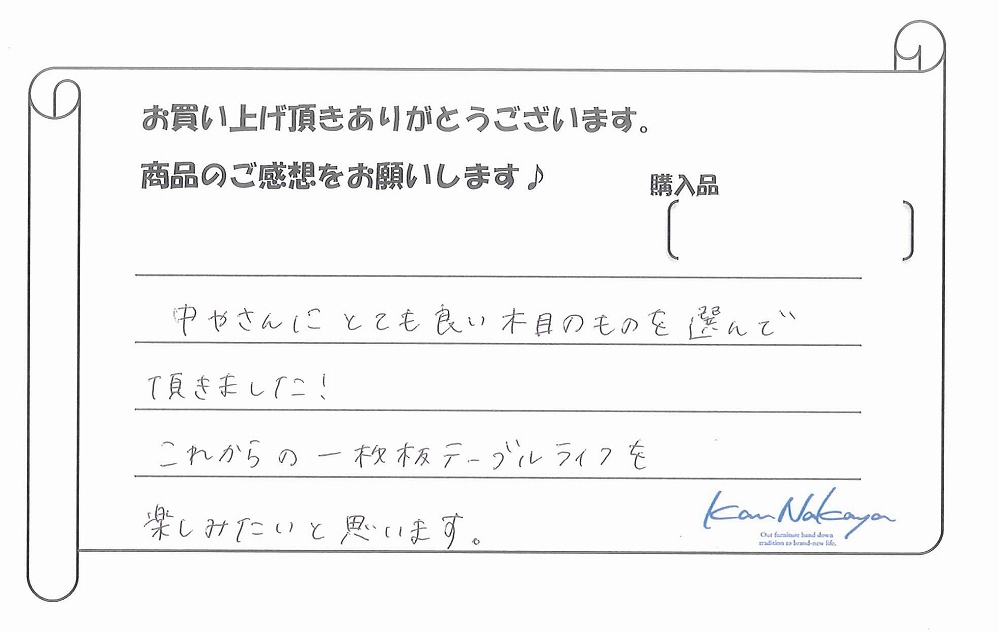 お買い上げ頂きありがとうございます。
商品のご感想をお願いします♪
購入品
中やさんにとても良い木目のものを選んで
頂きました!
これからの一枚板テーブルライフを
楽しみたいと思います。
Kan Nakaya
Our furniture hand down
tradition to brand-new life.